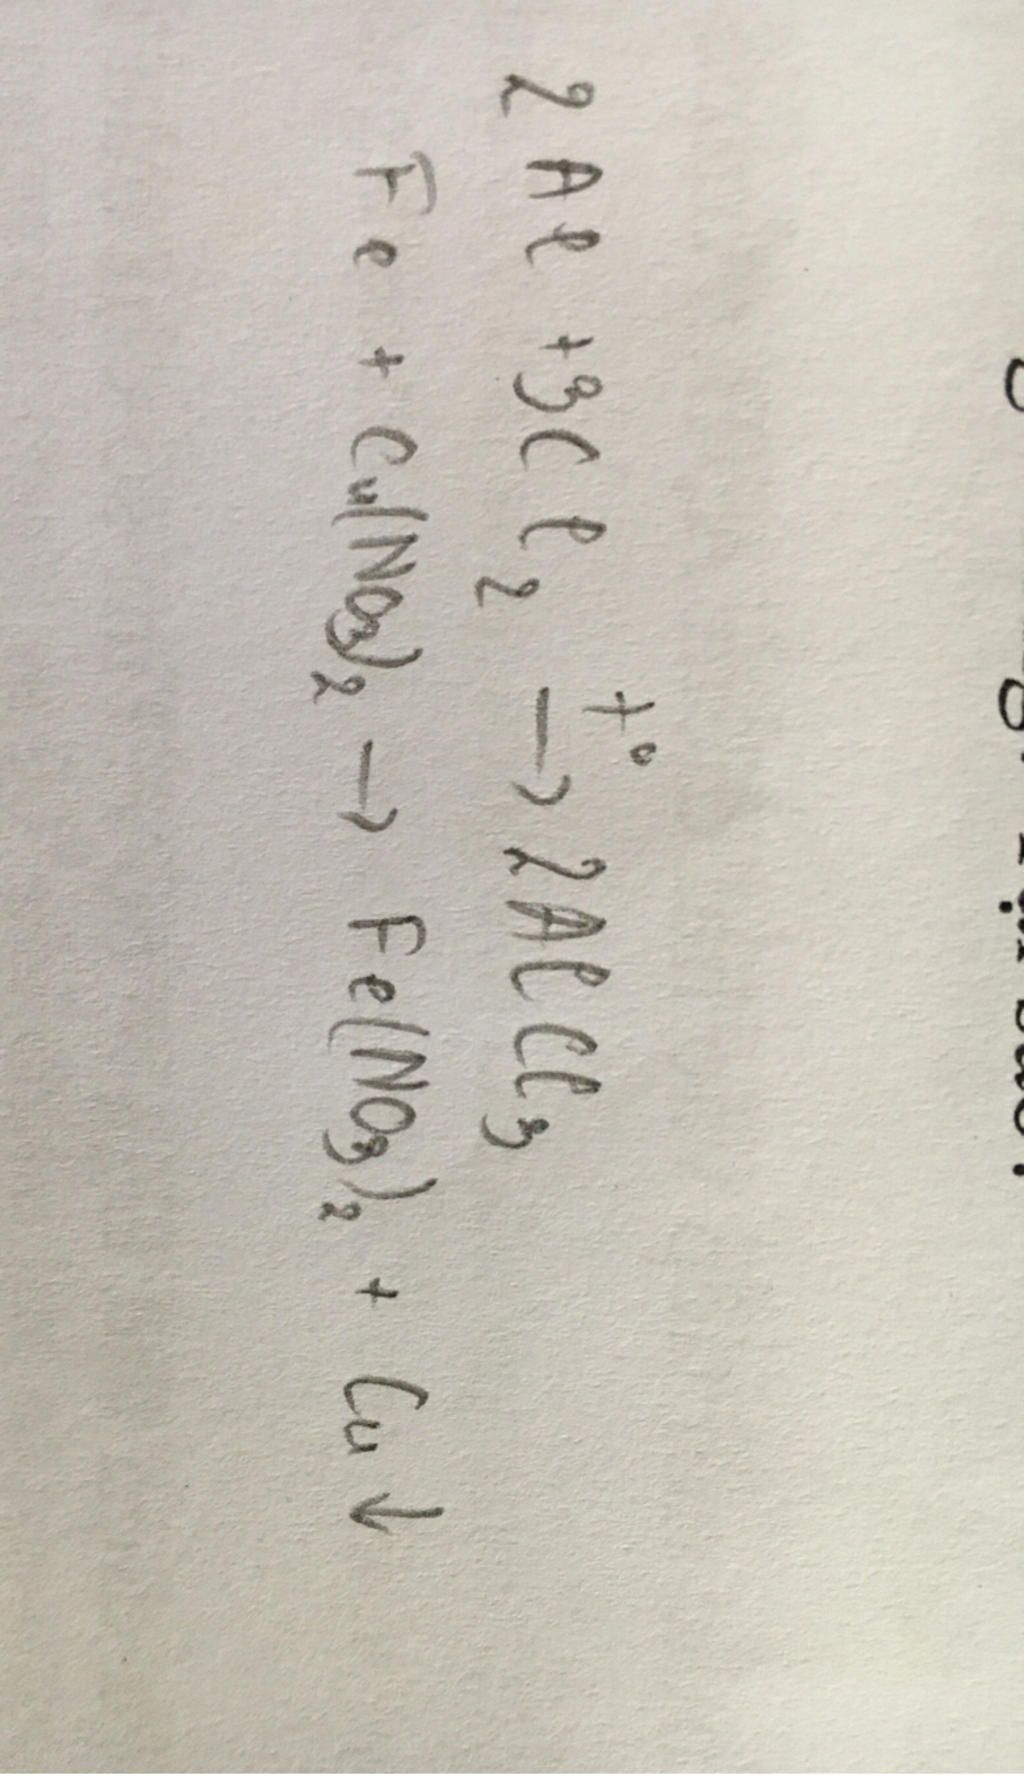 2Al + 3Cl₂ →t° 2AlCl₃
Fe + Cu(NO₃)₂ → Fe(NO₃)₂ + Cu↓